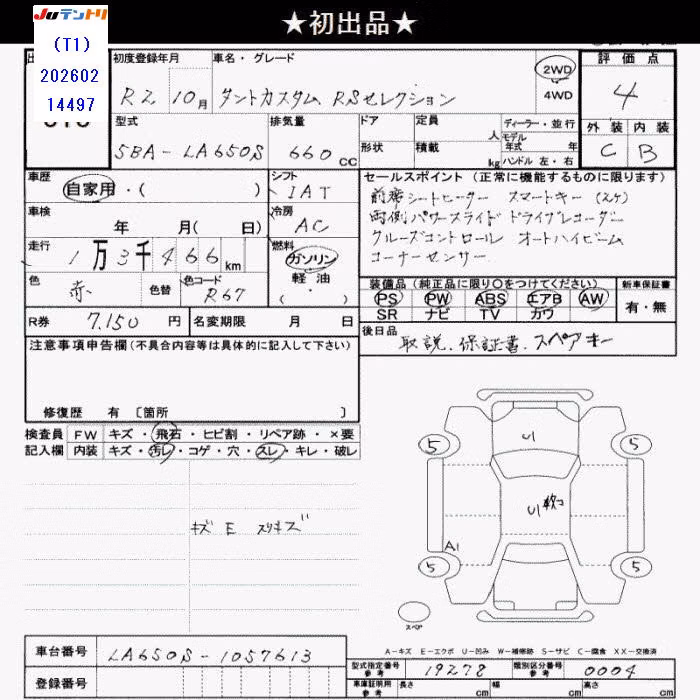 ★初出品★
JUテントリ
(T1)
202602
14497
初度登録年月 車名・グレード 評価点
R2 10月 タントカスタム RSセレクション 2WD 4WD 4
型式 排気量 ドア 定員 人 ディーラー・並行 外装 内装
5BA-LA650S 660 CC 形状 積載 kg モデル年式 年 ハンドル 左・右 C B
車歴 シフト セールスポイント (正常に機能するものに限ります)
自家用・( ) IAT 前席シートヒーター スマートキー(スケ)
車検 冷房 両側パワースライド ドライブレコーダー
年 月( 日) AC クルーズコントロール オートハイビーム
走行 燃料 コーナーセンサー
1万3千466km ガソリン
色 色替 色コード 軽油 装備品 (純正品に限り○をつけてください) 新車保証書
赤 R67 ( ) PS PW ABS エアB AW 有・無
SR ナビ TV カワ
R券 7,150 円 名変期限 月 日 後日品
取説、保証書、スペアキー
注意事項申告欄(不具合内容等は具体的に記入して下さい)
修復歴 有 〔箇所 〕
検査員 FW キズ・飛石・ヒビ割・リペア跡・×要
記入欄 内装 キズ・汚レ・コゲ・穴・スレ・キレ・破レ
キズ E スリキズ
U1
5 5
U1 軟コ
A1
5 5
スペア
A-キズ E-エクボ U-凹み W-補修跡 S-サビ C-腐食 XX-交換済
車台番号 LA650S-1057613
型式指定番号 参考 19278 類別区分番号 参考 0004
登録番号
車庫証明用 参考 長さ cm 幅 cm 高さ cm